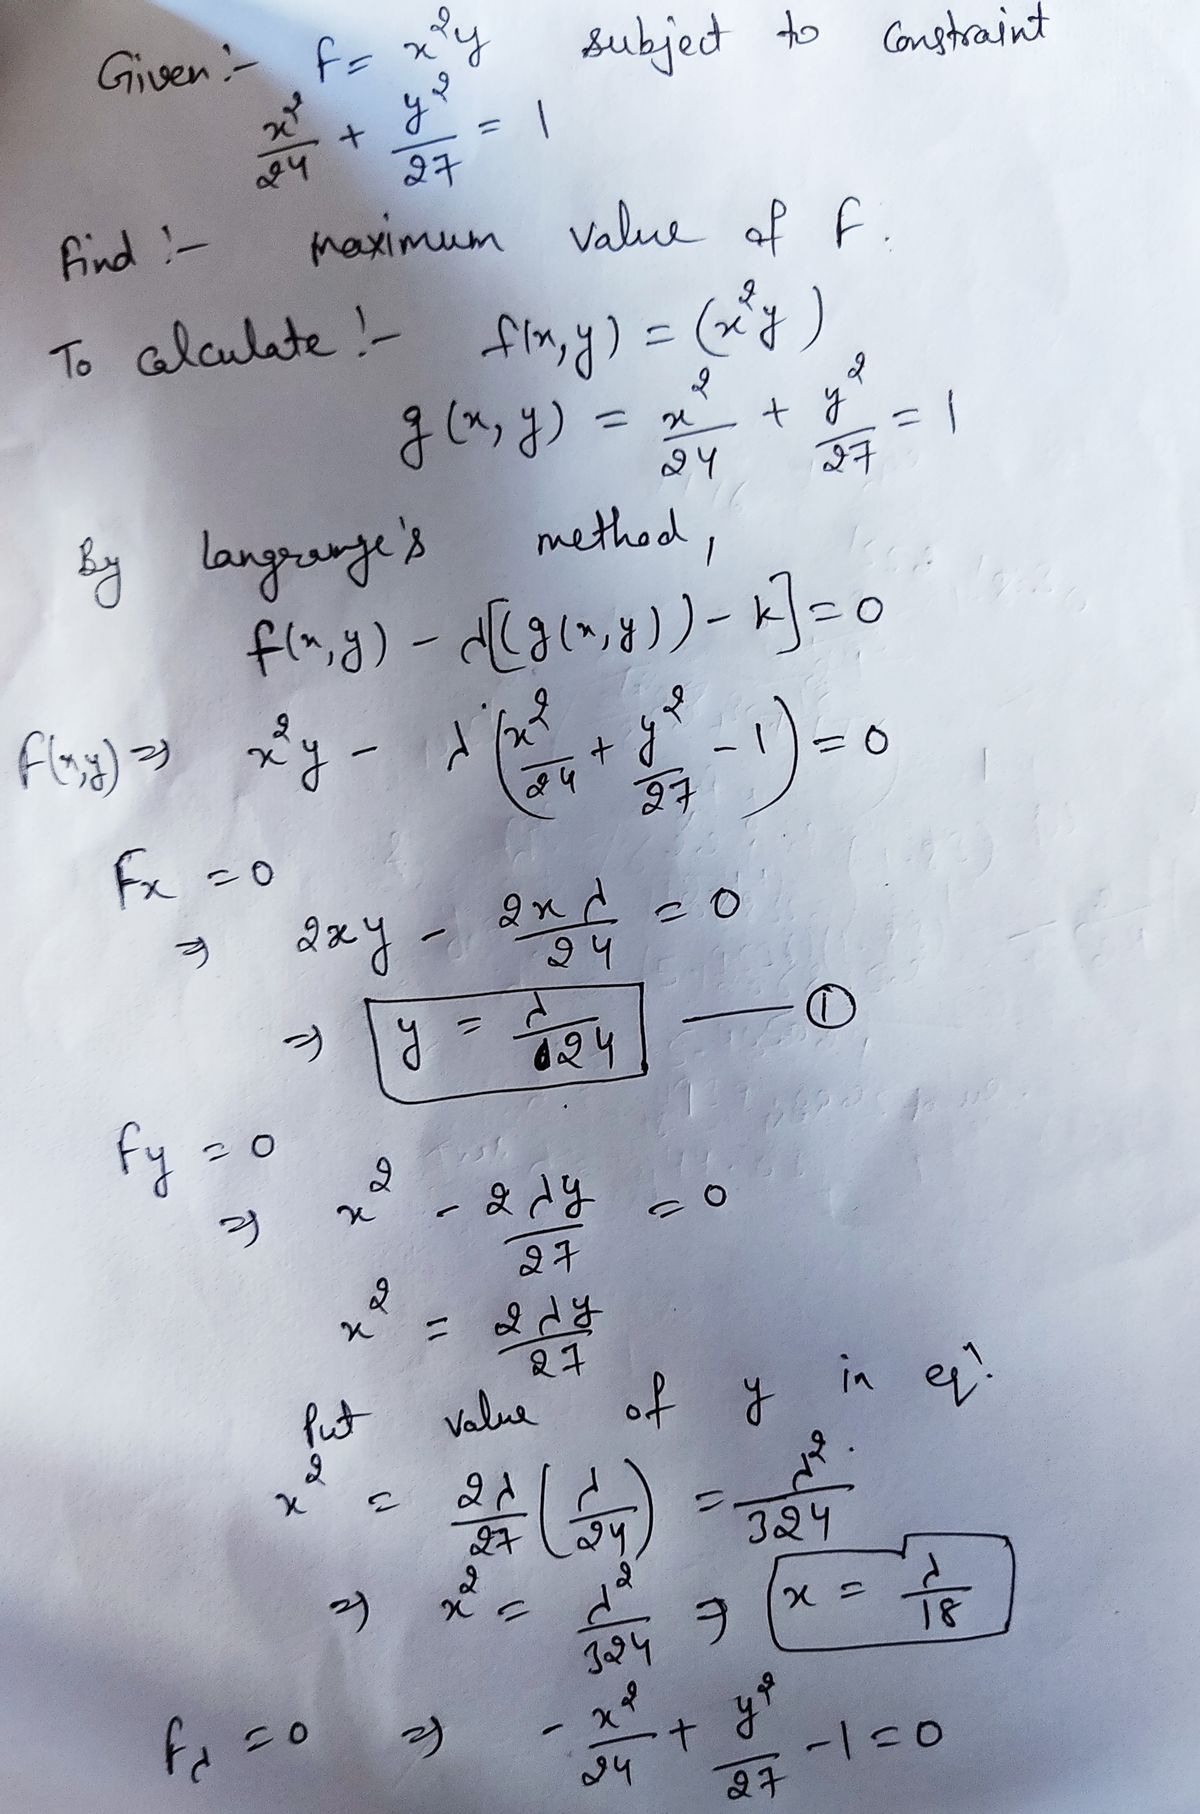 Given:- f = x²y subject to constraint
x²/24 + y²/27 = 1
find :- maximum value of f.
To calculate :- f(x,y) = (x²y)
g(x,y) = x²/24 + y²/27 = 1
By Langrange's method,
f(x,y) - λ[(g(x,y)) - k] = 0
F(x,y) ⇒ x²y - λ(x²/24 + y²/27 - 1) = 0
Fx = 0
⇒ 2xy - 2xλ/24 = 0
⇒ y = λ/24 —— ①
Fy = 0
⇒ x² - 2λy/27 = 0
x² = 2λy/27
Put value of y in eqⁿ.
x² = 2λ/27 (λ/24) = λ²/324
⇒ x² = λ²/324 ⇒ x = λ/18
Fλ = 0 ⇒ - x²/24 + y²/27 - 1 = 0